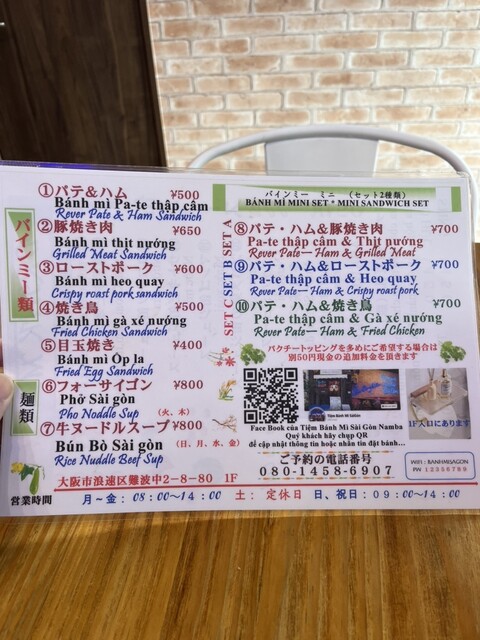 バインミー類
①パテ&ハム ¥500
Bánh mì Pa-te thập cẩm
Rever Pate & Ham Sandwich
②豚焼き肉 ¥650
Bánh mì thịt nướng
Grilled Meat Sandwich
③ローストポーク ¥600
Bánh mì heo quay
Crispy roast pork sandwich
④焼き鳥 ¥500
Bánh mì gà xé nướng
Fried Chicken Sandwich
⑤目玉焼き ¥400
Bánh mì Ốp la
Fried Egg Sandwich
麺類
⑥フォーサイゴン ¥800
Phở Sài gòn (火、木)
Pho Noddle Sup
⑦牛ヌードルスープ ¥800
Bún Bò Sài gòn (日、月、水、金)
Rice Nuddle Beef Sup
バインミー ミニ (セット2種類)
BÁNH MÌ MINI SET * MINI SANDWICH SET
SET A
⑧パテ・ハム&豚焼き肉 ¥700
Pa-te thập cẩm & Thịt nướng
Rever Pate— Ham & Grilled Meat
SET B
⑨パテ・ハム&ローストポーク ¥700
Pa-te thập cẩm & Heo quay
Rever Pate— Ham & Crispy roast pork
SET C
⑩パテ・ハム&焼き鳥 ¥700
Pa-te thập cẩm & Gà xé nướng
Rever Pate— Ham & Fried Chicken
パクチートッピングを多めにご希望する場合は
別50円現金の追加料金を頂きます
1F入口にあります
Face Book của Tiệm Bánh Mì Sài Gòn Namba
Quý khách hãy chụp QR
để cập nhật thông tin hoặc nhắn tin đặt bánh...
ご予約の電話番号
080-1458-6907
WIFI : BANHMISAIGON
PW : 12356789
大阪市浪速区難波中2-8-80 1F
営業時間 月~金:08:00~14:00 土:定休日 日、祝日:09:00~14:00